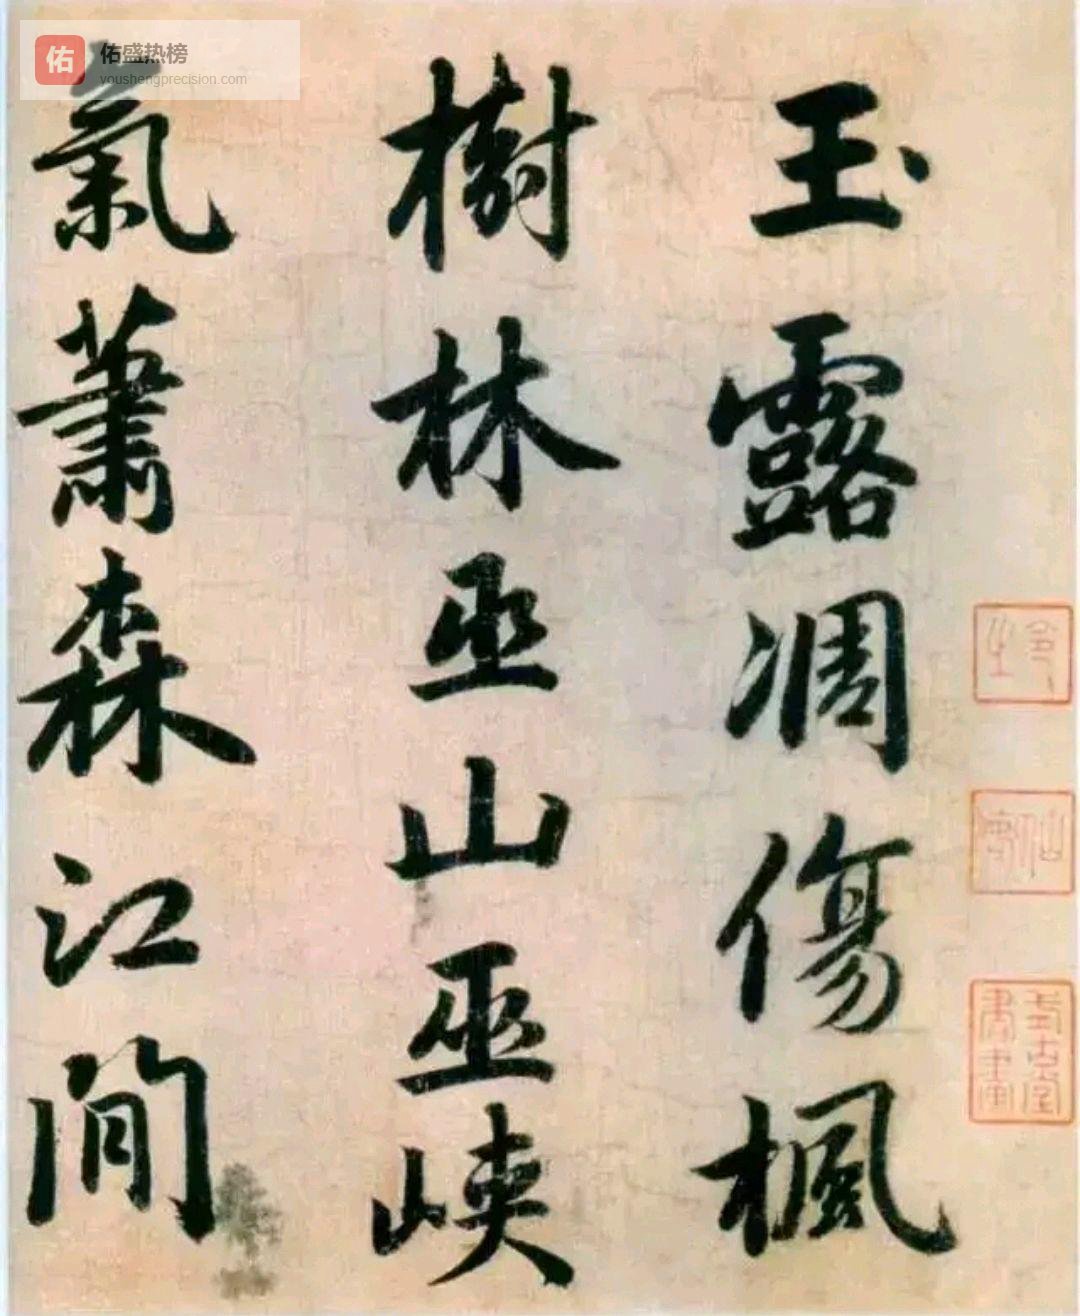 玉露凋傷楓
樹林巫山巫峽
氣蕭森江間
佑
佑盛热榜
youshengprecision.com